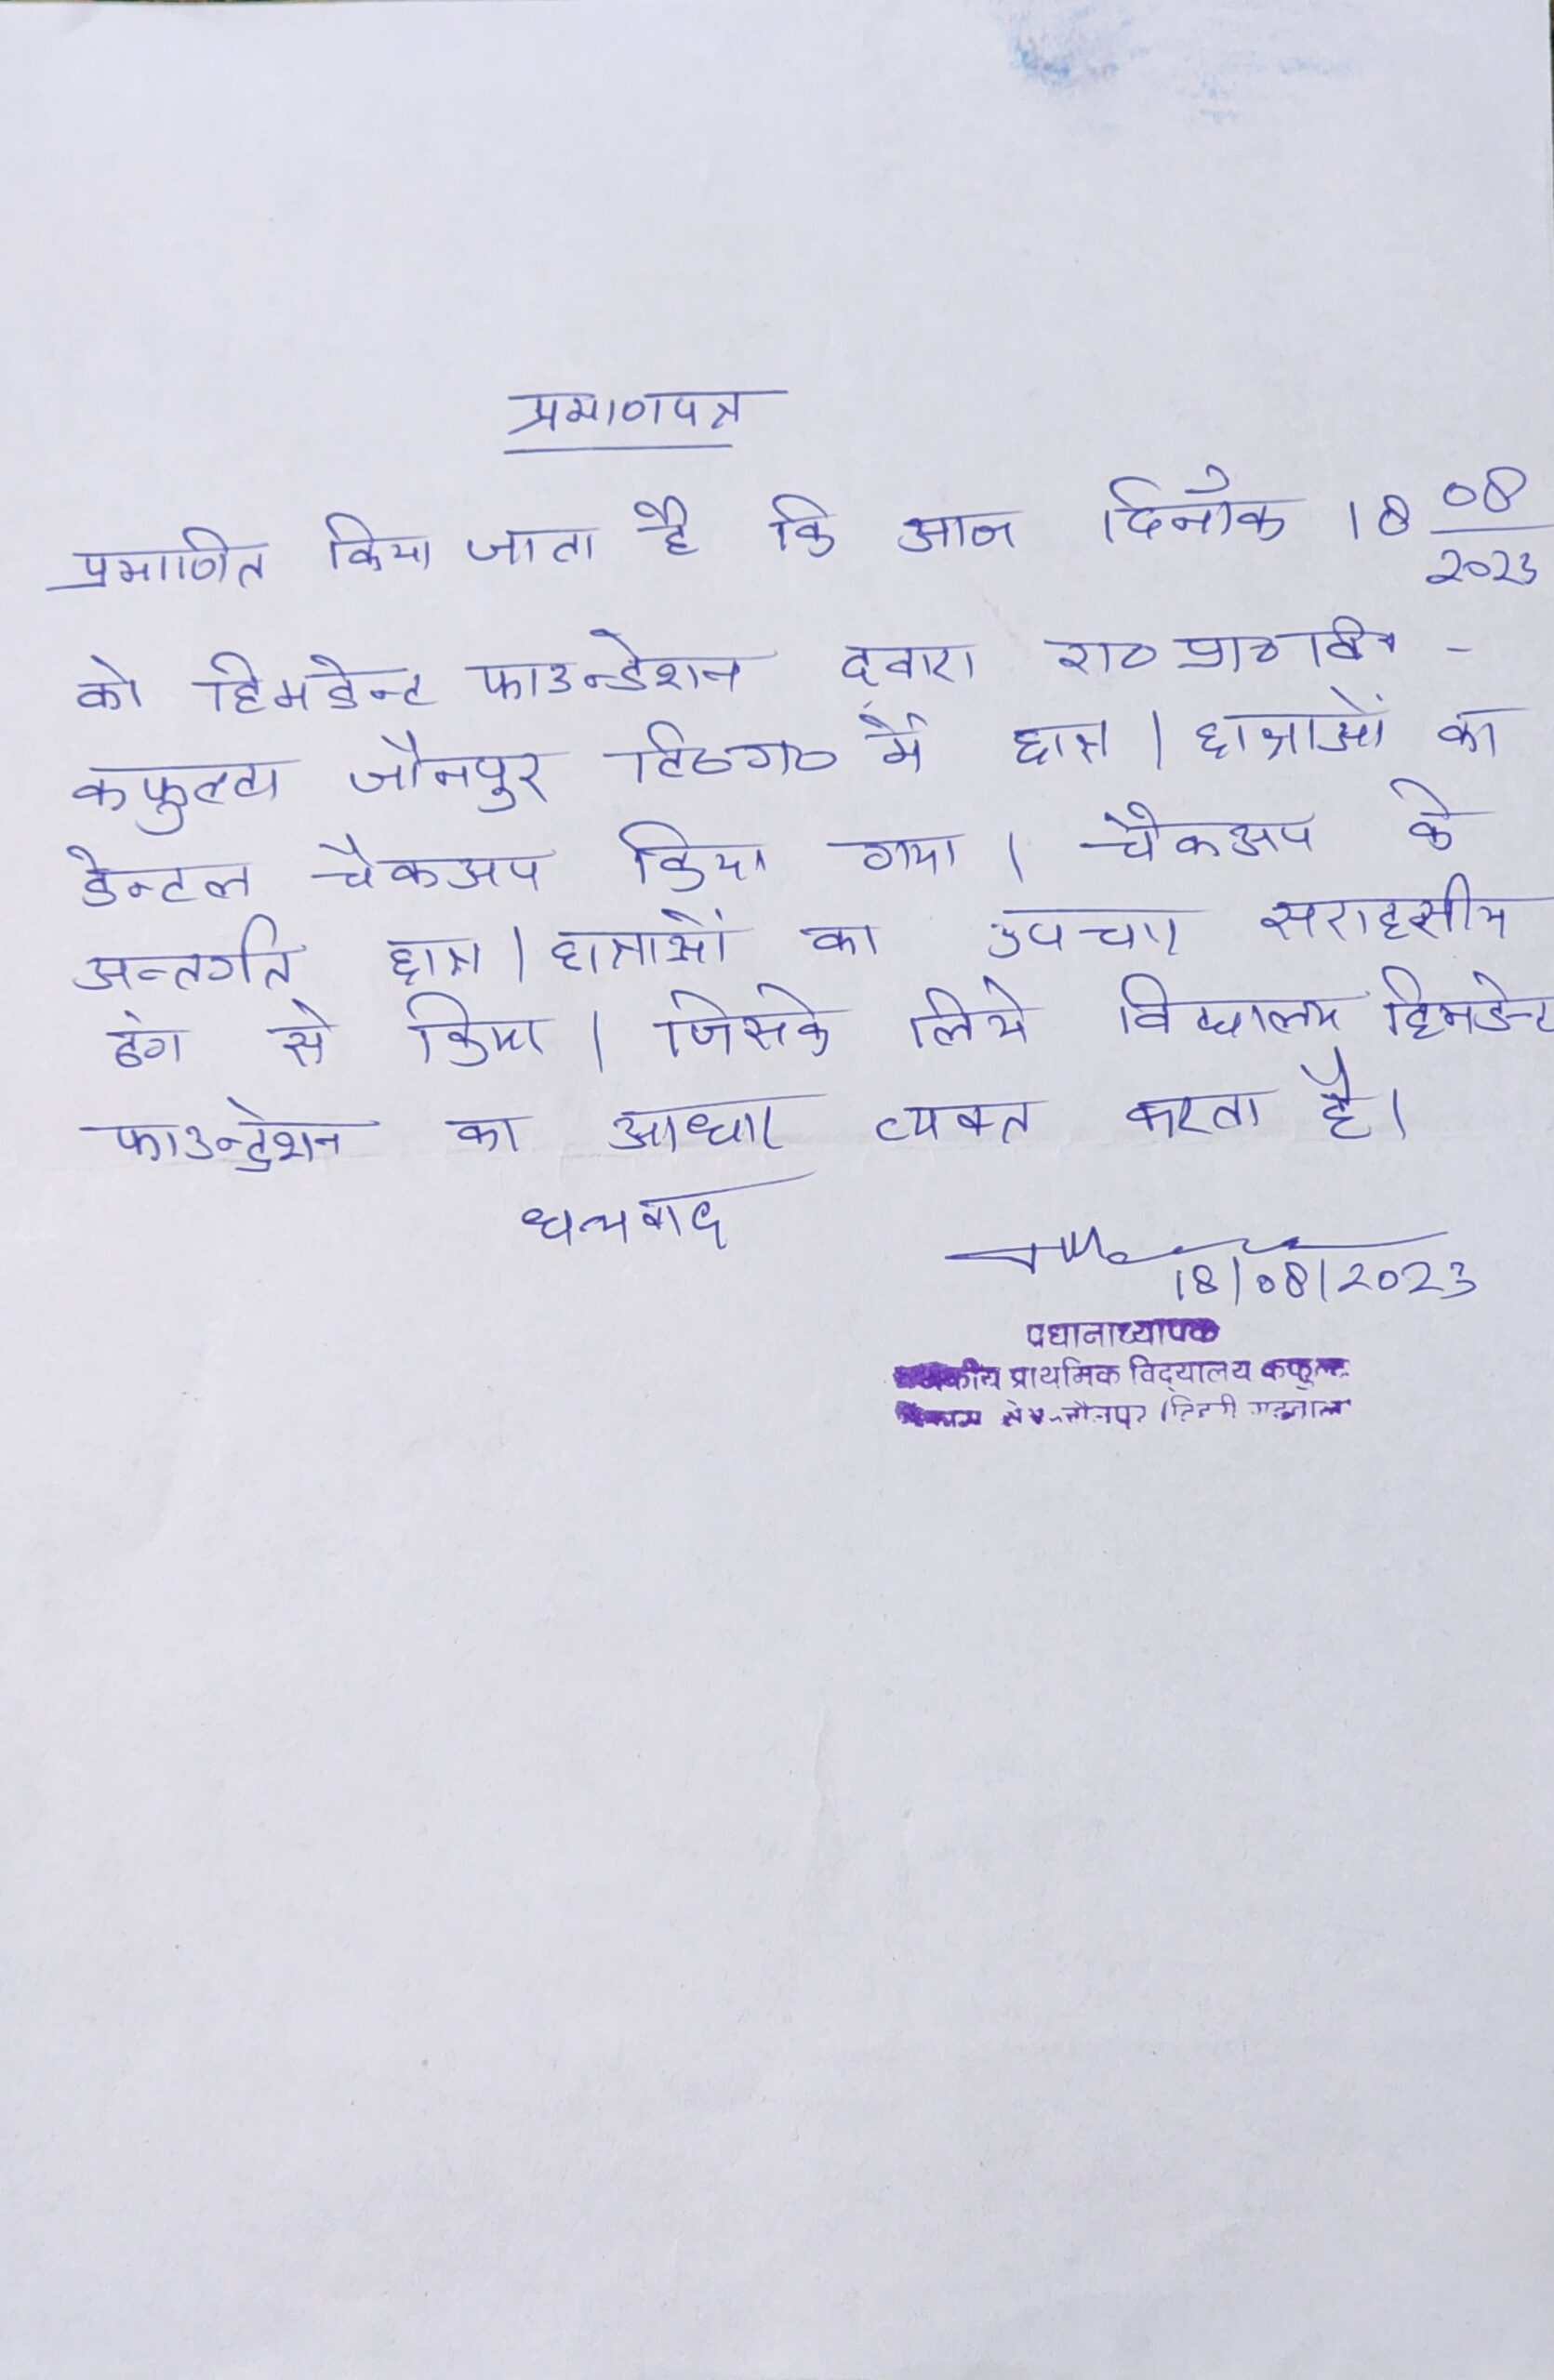 प्रमाणपत्र
प्रमाणित किया जाता है कि आज दिनाँक 18 08/2023
को हिमडेन्ट फाउन्डेशन द्वारा रा० प्रा० वि० -
कफुल्टा जौनपुर टि०ग० में छात्र / छात्राओं का
डेन्टल चैकअप किया गया । चैकअप के
अन्तर्गत छात्र / छात्राओं का उपचार सराहसीय
ढंग से किया । जिसके लिये विद्यालय हिमडेन्ट
फाउन्डेशन का आधार व्यक्त करता है ।
धन्यवाद
18/08/2023
प्रधानाध्यापक
प्राथमिक विद्यालय
टिहरी गढ़वाल